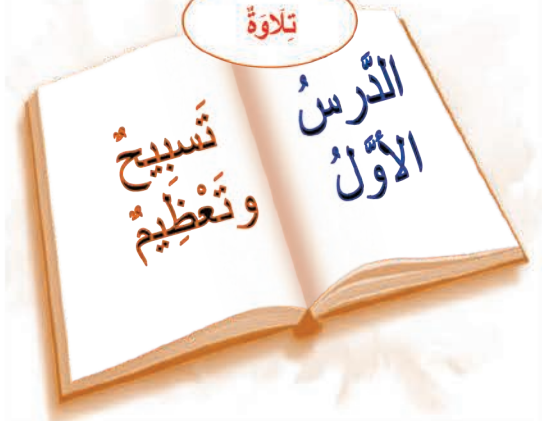 تِلَاوَةٌ
الدَّرسُ
الأوَّلُ
تَسبِيحٌ
وتَعْظِيمٌ